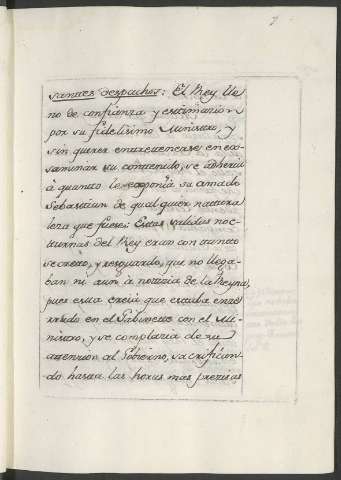 2
santes despachos: El Rey lle
no de confianza y estimazion
por su fidelisimo Ministro, y
sin querer entretenerse en ecsa
saminar su contenido, se adheria
à quanto le esponia su amado
Sebastian de qual quier natura
leza que fuese. Estas salidas noc-
turnas del Rey eran con tanto
secreto, y resguardo, que no llega-
ban ni aun à notizia de la Reyna,
pues esta creia que estaba enze
rrado en el Gabinete con el Mi-
nistro, y se complazia de su
attenzion al Gobierno, sacrifican-
do hasta las horas mas prezisas